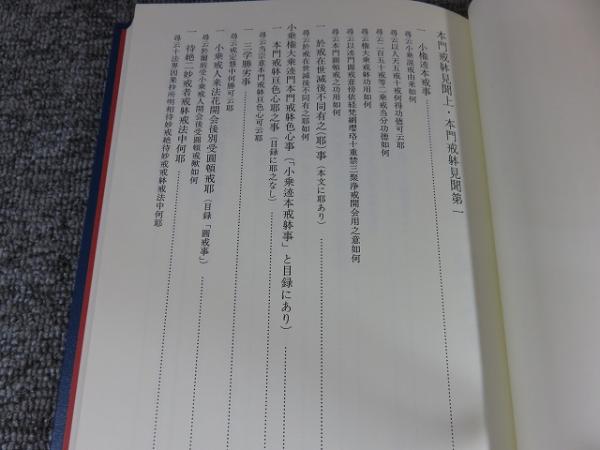 本門戒躰見聞上・本門戒躰見聞第一
一　小権迹本戒事
尋云小乗混戒由来如何
尋云以人天五戒十戒何得功徳可云耶
尋云二百五十戒等二乗戒当分功徳如何
尋云権大乗戒躰功用如何
尋云以迹門圓戒並傍依経梵網瓔珞十重禁三聚浄戒開会用之意如何
尋云本門圓頓戒之功用如何
一　於戒在世滅後不同有之（耶）事（本文に耶あり）
尋云於戒在世滅後不同有之耶如何
一　小乗権大乗迹門本門戒躰色心事（「小乗迹本戒躰事」と目録にあり）
一　本門戒躰亘色心耶之事（目録に耶之なし）
尋云当宗意本門戒躰亘色心可云耶
一　三学勝劣事
尋云戒定慧中何勝可云耶
一　小乗戒人来法花開会後別受圓頓戒耶（目録「圓戒事」）
尋云於爾前受小乗戒人開会後受圓頓戒歟如何
一　待絶二妙戒者戒躰戒法中何耶
尋云十法界因果抄所明相待妙戒絶待妙戒戒躰戒法中何耶